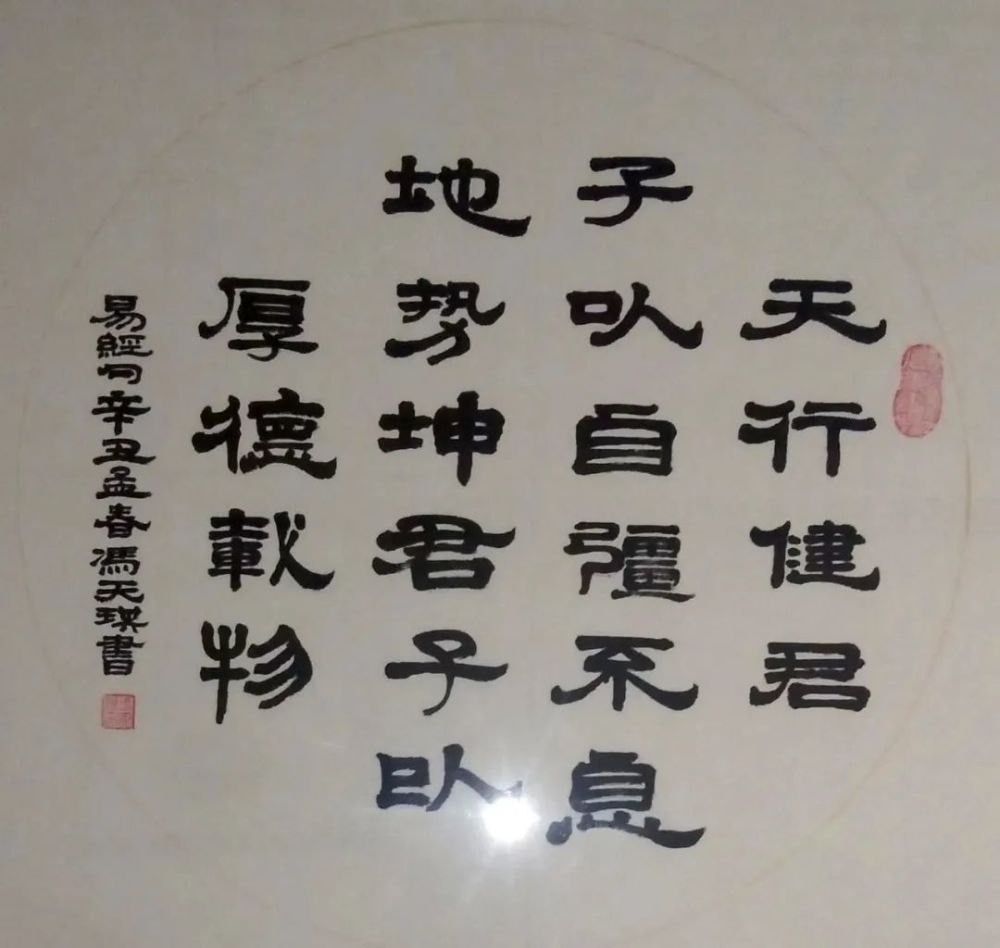 天行健君
子以自彊不息
地势坤君子以
厚德載物
易經句辛丑孟春馮天瑛書